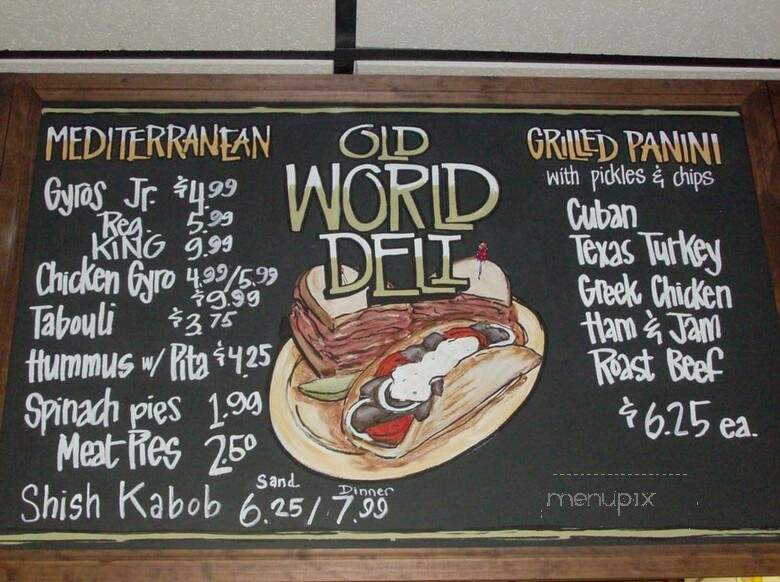 MEDITERRANEAN
Gyros Jr. $4.99
Reg. 5.99
KING 9.99
Chicken Gyro 4.99/5.99
$9.99
Tabouli $3.75
Hummus w/ Pita $4.25
Spinach pies 1.99
Meat Pies 2.50
Sand. Dinner
Shish Kabob 6.25/7.99
OLD
WORLD
DELI
GRILLED PANINI
with pickles & chips
Cuban
Texas Turkey
Greek Chicken
Ham & Jam
Roast Beef
$6.25 ea.
menupix